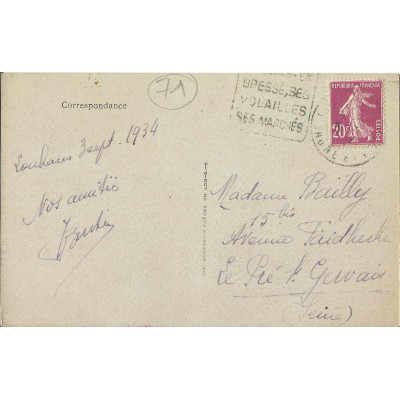 71
EN
BRESSE, SES
VOLAILLES
SES MARCHÉS
REPUBLIQUE FRANÇAISE
20c
POSTES
Correspondance
Louhans 3 sept. 1934
Nos amitiés
Madame Bailly
15 bis
Avenue Faidherbe
Le Pré St Gervais
(Seine)